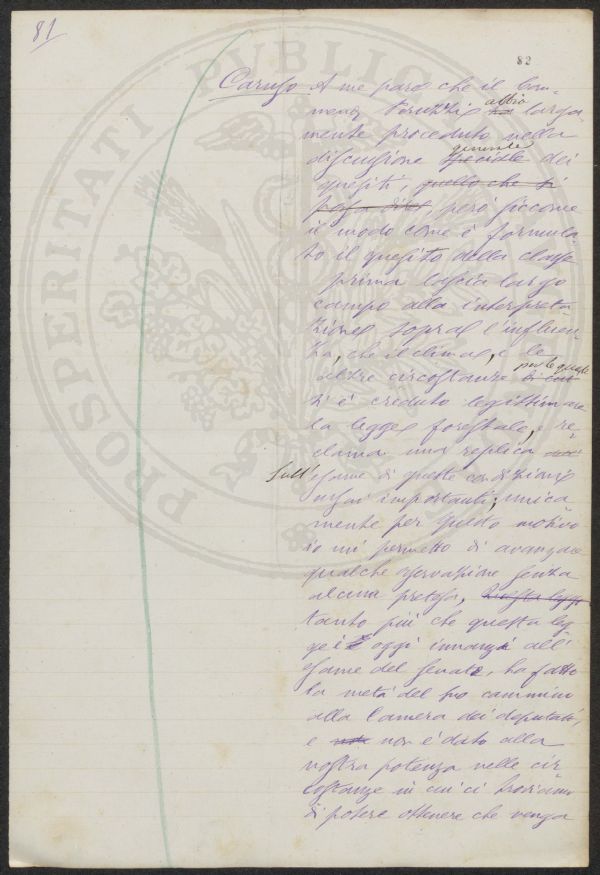 81
82
Caruso A me pare che il Com-
mend. Peruzzi abbia larga-
mente proceduto nella
discussione speciale generale dei
quesiti, quello che si
possa dire, però siccome
il modo come è formula-
to il quesito della classe
prima lascia largo
campo alla interpreta-
zione sopra l'influen-
za, che il clima, e le
altre circostanze di cui per le quali
si è creduto legittimare
la legge forestale, re-
clama una replica
sull' esame di queste condizioni
assai importanti; unica
mente per questo motivo
io mi permetto di avanzare
qualche osservazione senza
alcuna pretesa, questa legge
tanto più che questa leg
ge è oggi innanzi all'
esame del Senato, ha fatto
la metà del suo cammino
alla Camera dei deputati,
e non è dato alla
nostra potenza nelle cir
costanze in cui ci troviamo
di potere ottenere che venga
PROSPERITATI PUBLICAE